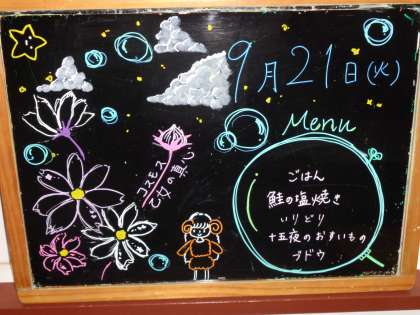 9月21日(火)
Menu
ごはん
鮭の塩焼き
いりどり
十五夜のおすいもの
ブドウ
コスモス
乙女の真心